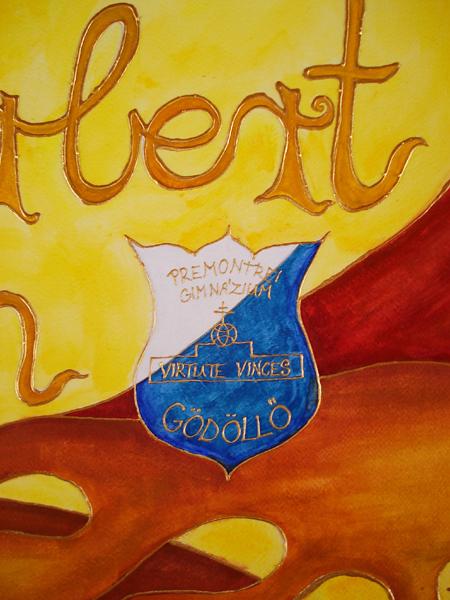 rbert
PREMONTREI
GIMNÁZIUM
VIRTUTE VINCES
GÖDÖLLŐ